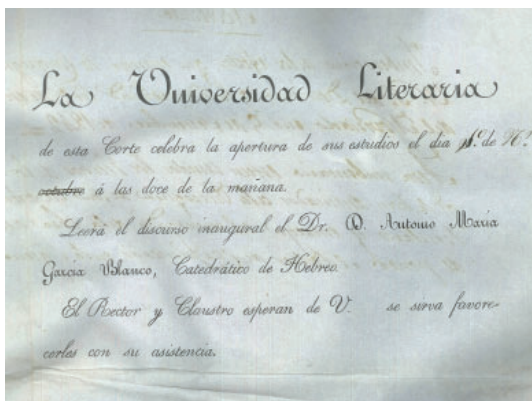 La Universidad Literaria
de esta Corte celebra la apertura de sus estudios el dia 1.º de N.e
octubre á las doce de la mañana.
Leerá el discurso inaugural el Dr. D. Antonio María
García Blanco, Catedrático de Hebreo.
El Rector y Claustro esperan de V. se sirva favore-
cerles con su asistencia.